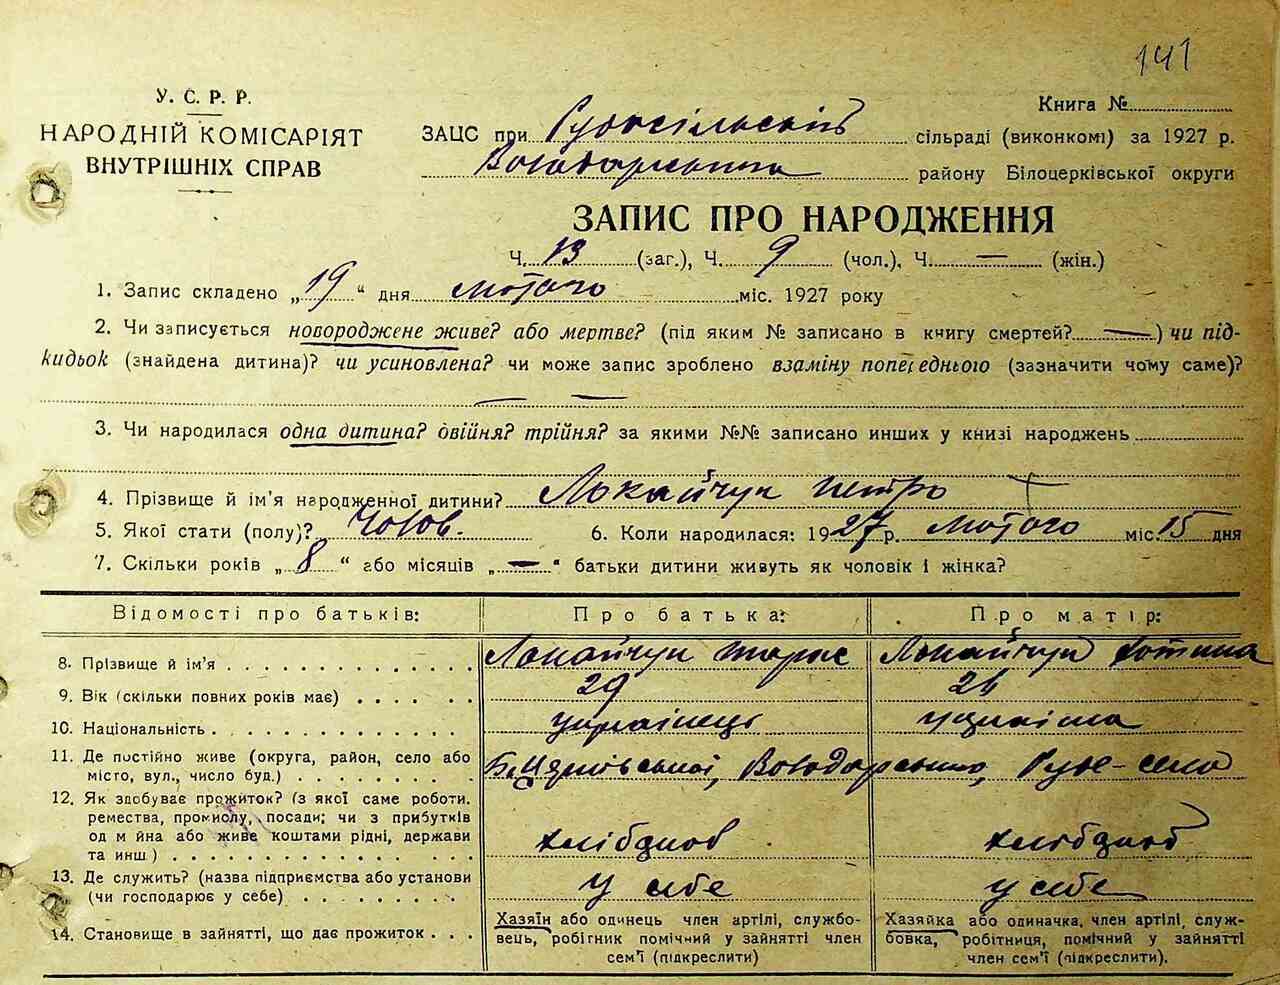 141
У. С. Р. Р.
НАРОДНІЙ КОМІСАРІЯТ
ВНУТРІШНІХ СПРАВ
Книга №
ЗАЦС при Рудосільській сільраді (виконкомі) за 1927 р.
Володарського району Білоцерківської округи
ЗАПИС ПРО НАРОДЖЕННЯ
Ч. 13 (заг.), Ч. 9 (чол.), Ч. — (жін.)
1. Запис складено „19" дня лютого міс. 1927 року
2. Чи записується новороджене живе? або мертве? (під яким № записано в книгу смертей? —) чи під-
кидьок (знайдена дитина)? чи усиновлена? чи може запис зроблено взаміну попереднього (зазначити чому саме)?
— —
3. Чи народилася одна дитина? двійня? трійня? за якими №№ записано инших у книзі народжень
4. Прізвище й ім'я народженної дитини? Локайчук Петро
5. Якої стати (полу)? чолов. 6. Коли народилася: 1927 р. лютого міс. 15 дня
7. Скільки років „8" або місяців „—" батьки дитини живуть як чоловік і жінка?
Відомості про батьків: Про батька: Про матір:
8. Прізвище й ім'я Локайчук Тарас Локайчук
9. Вік (скільки повних років має) 29 24
10. Національність українець українка
11. Де постійно живе (округа, район, село або
місто, вул., число буд.) Б.Церківської, Володарського, Руде-село
12. Як здобуває прожиток? (з якої саме роботи.
ремества, промислу, посади; чи з прибутків
од майна або живе коштами рідні, держави
та инш.) хлібороб хлібороб
13. Де служить? (назва підприємства або установи
(чи господарює у себе) у себе у себе
14. Становище в зайнятті, що дає прожиток
Хазяїн або одинець член артілі, службо-
вець, робітник помічний у зайнятті член
сем'ї (підкреслити)
Хазяйка або одиначка, член артілі, служ-
бовка, робітниця, помічний у зайнятті
член сем'ї (підкреслити).